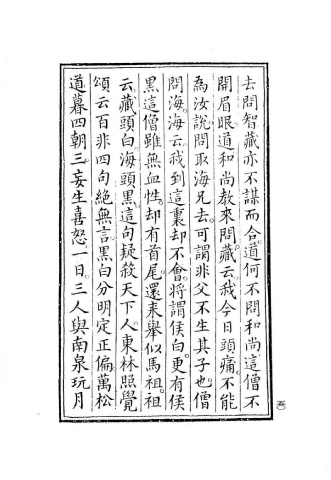 去問智藏亦不謀而合道何不問和尚這僧不
開眉眼道和尚教來問藏云我今日頭痛不能
為汝說問取海兄去可謂非父不生其子也僧
問海海云我到這裏却不會將謂侯白更有侯
黑這僧雖無血性却有首尾還來舉似馬祖祖
云藏頭白海頭黑這句疑殺天下人東林照覺
頌云百非四句絕無言黑白分明定正偏萬松
道暮四朝三妄生喜怒一日三人與南泉玩月